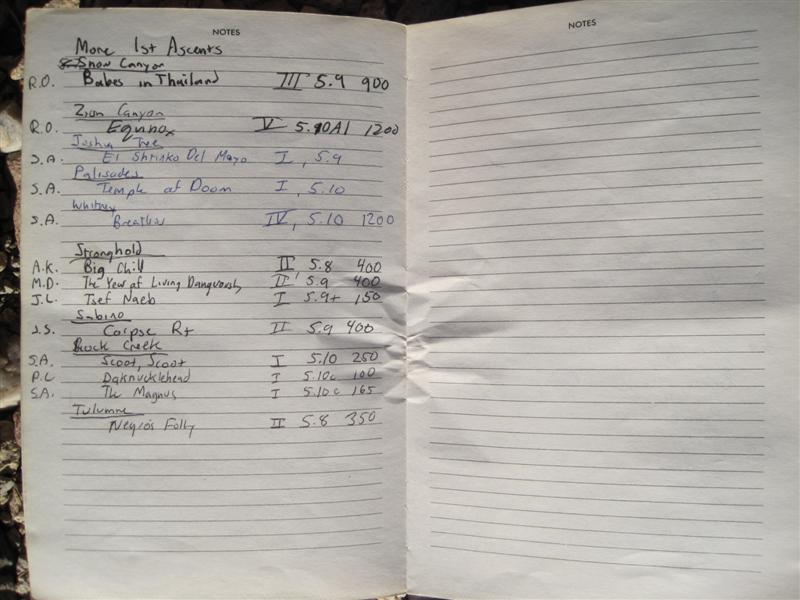 NOTES
More 1st Ascents
Snow Canyon
R.O. Babes in Thailand III 5.9 900
Zion Canyon
R.O. Equinox V 5.10 A1 1200
Joshua Tree
S.A. El Shrinko Del Mayo I, 5.9
Palisades
S.A. Temple of Doom I, 5.10
Whitney
S.A. IV, 5.10 1200
Stronghold
A.K. Big Chill II 5.8 400
M.D. The Year of Living Dangerously II 5.9 400
J.L. Tsef Naeb I 5.9+ 150
Sabino
J.S. Corpse Rt II 5.9 400
Rock Creek
S.A. Scoot, Scoot I 5.10 250
P.L. Daknucklehead I 5.10c 100
S.A. The Magnus I 5.10c 165
Tulumne
Negro's Folly II 5.8 350
NOTES